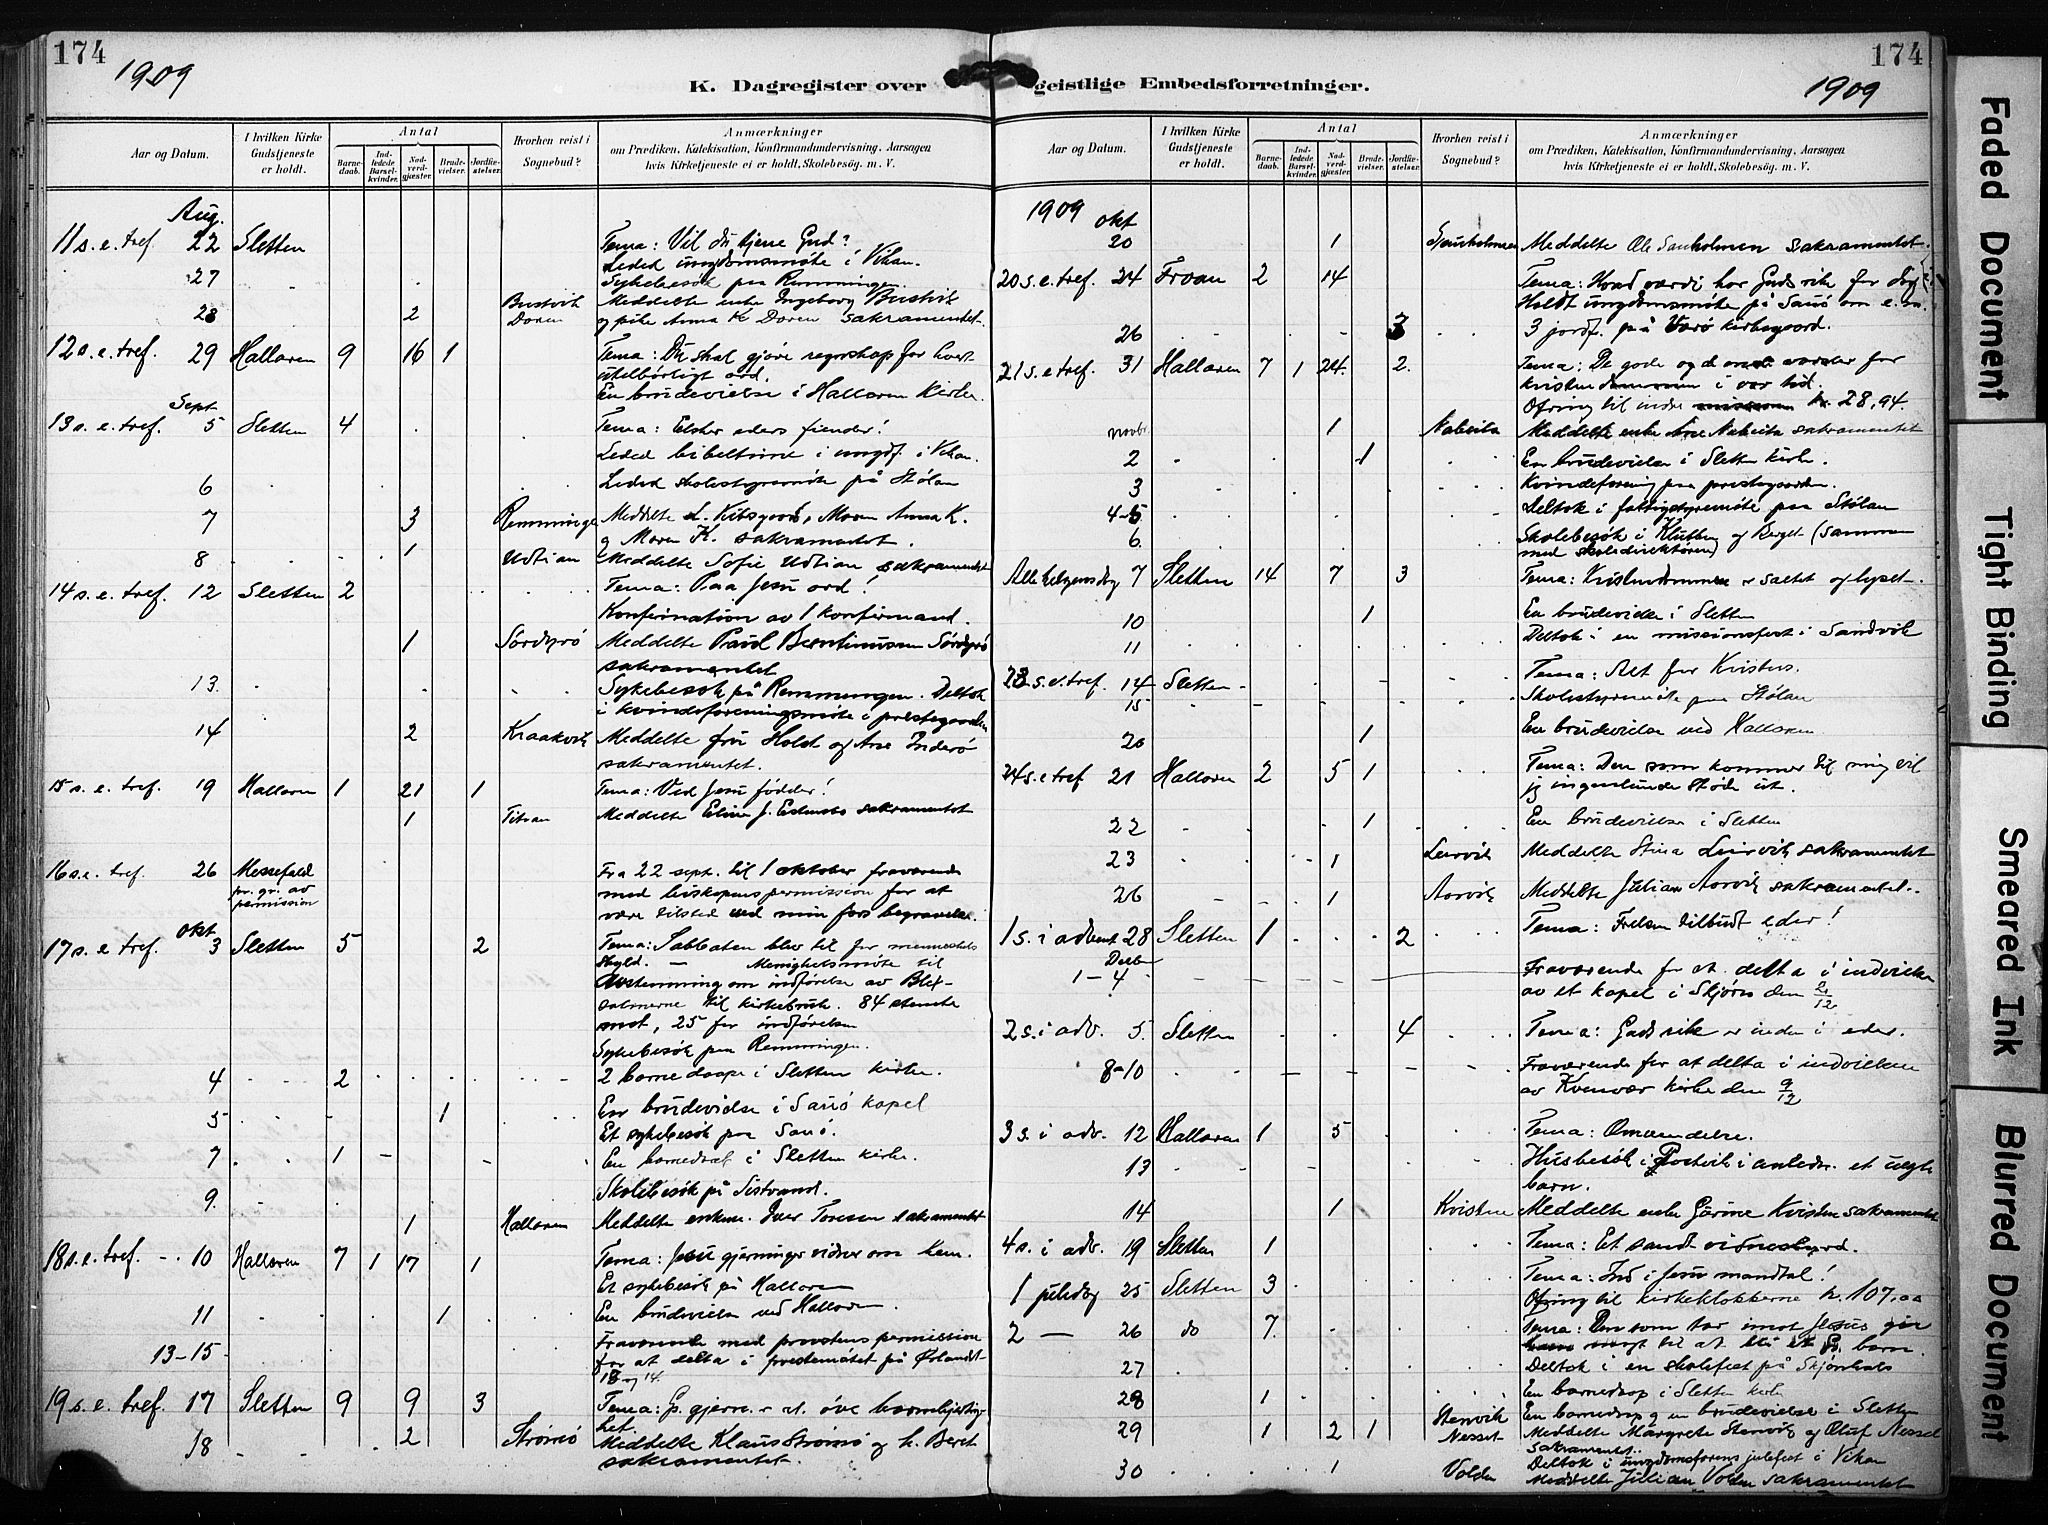 174
1909
K. Dagregister over
Aar og Datum.
I hvilken Kirke Gudstjeneste er holdt.
Antal
Barnedaab.
Indledede Barselkvinder.
Nadverdgjæster.
Brudevielser.
Jordfæstelser.
Hvorhen reist i Sognebud?
Anmærkninger
om Prædiken, Katekisation, Konfirmandundervisning, Aarsagen
hvis Kirketjeneste ei er holdt, Skolebesög. m. V.
Aug.
11 s. e. tref. 22 Sletten Tema: Vil du tjene Gud?
Leded ungdomsmøte i Vikan.
27 Sykebesøk paa Remmingen.
28 2 Bustvik Meddelte enke Ingeborg Bustvik
Doren og pike Anna K Doren sakramentet.
12 s. e. tref. 29 Hallaren 9 16 1 Tema: Du skal gjøre regnskap for hvert
utilbørligt ord.
En brudevielse i Hallaren Kirke.
Sept
13 s. e. tref. 5 Sletten 4 Tema: Elsker eders fiender!
Leded bibeltime i ungdf. i Vikan.
6 Leded skolestyremøte på Stølan
7 3 Remminge Meddelte Maren Anna K.
og Maren K. sakramentet.
8 1 Udtian Meddelte Sofie Udtian sakramentet
14 s. e. tref. 12 Sletten 2 Tema: Paa Jesu ord!
Konfirmation av 1 konfirmand.
1 Sørdyrø Meddelte Paul Berntinussen Sørdyrø
sakramentet
13. Sykebesøk på Remmingen. Deltok
i kvindeforeningsmøte i prestegaarden
14 2 Kraakvik Meddelte fru Holst og Ane Inderø
sakramentet.
15 s. e. tref. 19 Hallaren 1 21 1 Tema: Ved Jesu fødder!
1 Titran Meddelte Eline J. sakramentet
16 s. e. tref. 26 Messefald Fra 22 sept. til 1 oktober fraværende
pr. gr. av permission med biskopens permission for at
være tilsted ved min fars begravelse.
okt
17 s. e. tref. 3 Sletten 5 2 Tema: Sabbaten blev til for menneskets
skyld. — Menighetsmøte til
avstemning om indførelse av Blix-
salmerne til kirkebruk. 84 stemte
mot, 25 for indførelsen
Sykebesøk paa Remmingen.
4 2 2 barnedaape i Sletten kirke.
5 1 En brudevielse i Sauø kapel
Et sykebesøk paa Sauø.
7 1 En barnedaab i Sletten kirke.
9. Skolebesøk på Sistrand.
1 Hallaren Meddelte enkem. Iver Toresen sakramentet
18 s. e. tref. 10 Hallaren 7 1 17 1 Tema: Jesu gjerninger vidner om ham.
Et sykebesøk på Hallaren
11 1 En brudevielse ved Hallaren.
13-15 Fraværende med provstens permission
for at delta i prestemøtet på Ørlandet
13 og 14.
19 s. e. tref. 17 Sletten 9 9 3 Tema: Gs. gjern. er at øve barmhjertig-
het.
18 2 Strømø Meddelte Klaus Strømø og h. Beret
sakramentet.
174
1909
geistlige Embedsforretninger.
Aar og Datum.
I hvilken Kirke Gudstjeneste er holdt.
Antal
Barnedaab.
Indledede Barselkvinder.
Nadverdgjæster.
Brudevielser.
Jordfæstelser.
Hvorhen reist i Sognebud?
Anmærkninger
om Prædiken, Katekisation, Konfirmandundervisning, Aarsagen
hvis Kirketjeneste ei er holdt, Skolebesög. m. V.
1909 okt
20 1 Meddelte Ole sakramentet.
20 s. e. tref. 24 Froan 2 14 Tema: Hvad værdi har Guds rike for dig?
Holdt ungdomsmøte på Sauø om e. m.
26 3 3 jordf. på Værø kirkegaard.
21 s. e. tref. 31 Hallaren 7 1 24. 2. Tema: De gode og de onde varsler for
kristendommen i vor tid.
Ofring til indre missionen kr. 28,94.
novbr. 1 Nabeita Meddelte enke Ane Nabeita sakramentet
2 1 En brudevielse i Sletten kirke.
3 Kvindeforening paa prestegaarden.
4-5 Deltok i fattigstyremøte paa Stølan
6. Skolebesøk i og Berget (sammen
med skoledirektøren)
Alle helgensdag 7 Sletten 14 7 3 Tema: Kristendommen er saltet og lyset.
10 1 En brudevielse i Sletten
11 Deltok i en missionsfest i Sandvik
23 s. e. tref. 14 Sletten Tema: Alt for Kristus.
15 Skolestyremøte paa Stølan
20 1 En brudevielse ved Hallaren
24 s. e. tref 21 Hallaren 2 5 1 Tema: Den som kommer til mig vil
jeg ingenlunde støde ut.
22 1 En brudevielse i Sletten
23 1 Leirvik Meddelte Stina Leirvik sakramentet
26 1 Aorvik Meddelte Julian Aorvik sakramentet.
1 s. i advent 28 Sletten 1 2 Tema: Frelsen tilbudt eder!
Decbr
1-4 Fraværende for at delta i indvielse
av et kapel i Skjøres den 2/12
2 s. i adv. 5. Sletten 4 Tema: Guds rik er inden i eder.
8-10 Fraværende for at delta i indvielsen
av Kvenvær kirke den 9/12
3 s. i adv. 12 Hallaren 1 5 Tema: Omvendelse.
13 Husbesøk i i anledn. et uegte
barn.
14 1 Kvisten Meddelte enke Gurine Kvisten sakramentet
4 s. i adv. 19 Sletten 1 Tema: Et sandt vidnesbyrd.
1 juledag 25 Sletten 3 Tema: Ind i Jesu mandtal!
Ofring til kirkeklokkerne kr. 107,00
2 — 26 do 7. Tema: Den som tar imot Jesus gir
han magt til at bli et Gs. barn.
27 Deltok i en skolefest på
28 1 En barnedaap i Sletten kirke
29 1 2 1 Stenvik En barnedaap og en brudevielse i Sletten
Nesset Meddelte Margrete Stenvik og Olaf Nesset
sakramentet.
30 1 Volden Deltok i ungdomsforens julefest i Vikan
Meddelte Julian Volden sakramentet
Faded Document
Tight Binding
Smeared Ink
Blurred Document